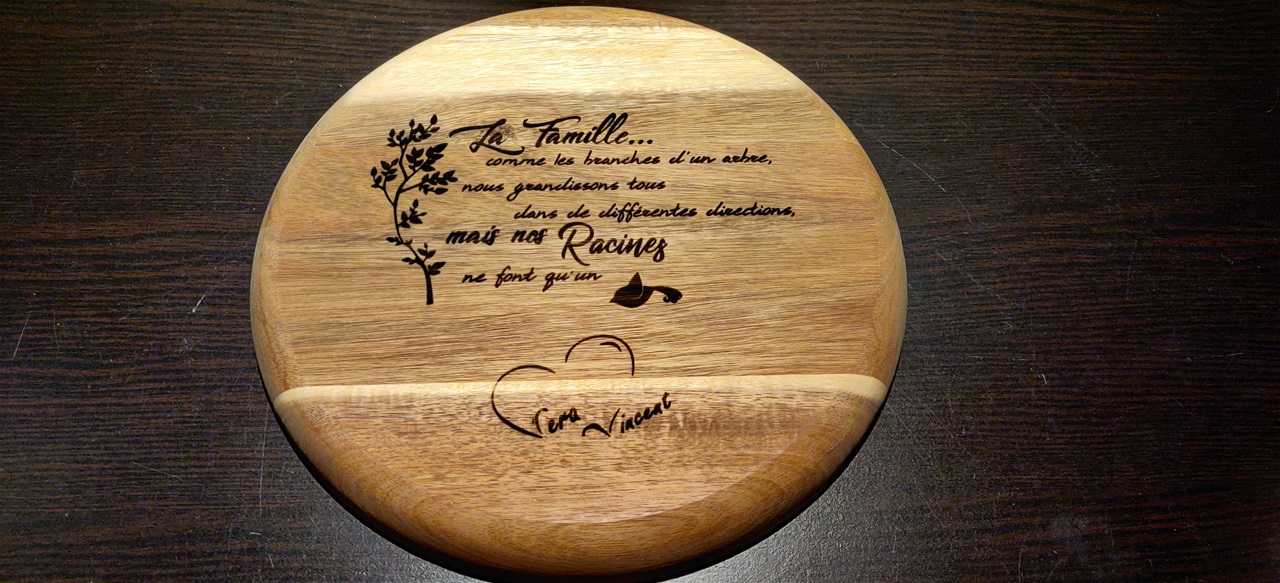 La Famille...
comme les branches d'un arbre,
nous grandissons tous
dans de différentes directions,
mais nos Racines
ne font qu'un
Vera Vincent